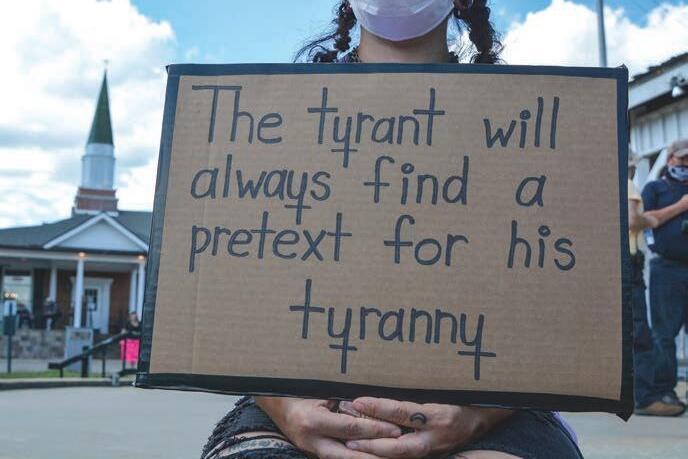 The tyrant will
always find a
pretext for his
tyranny